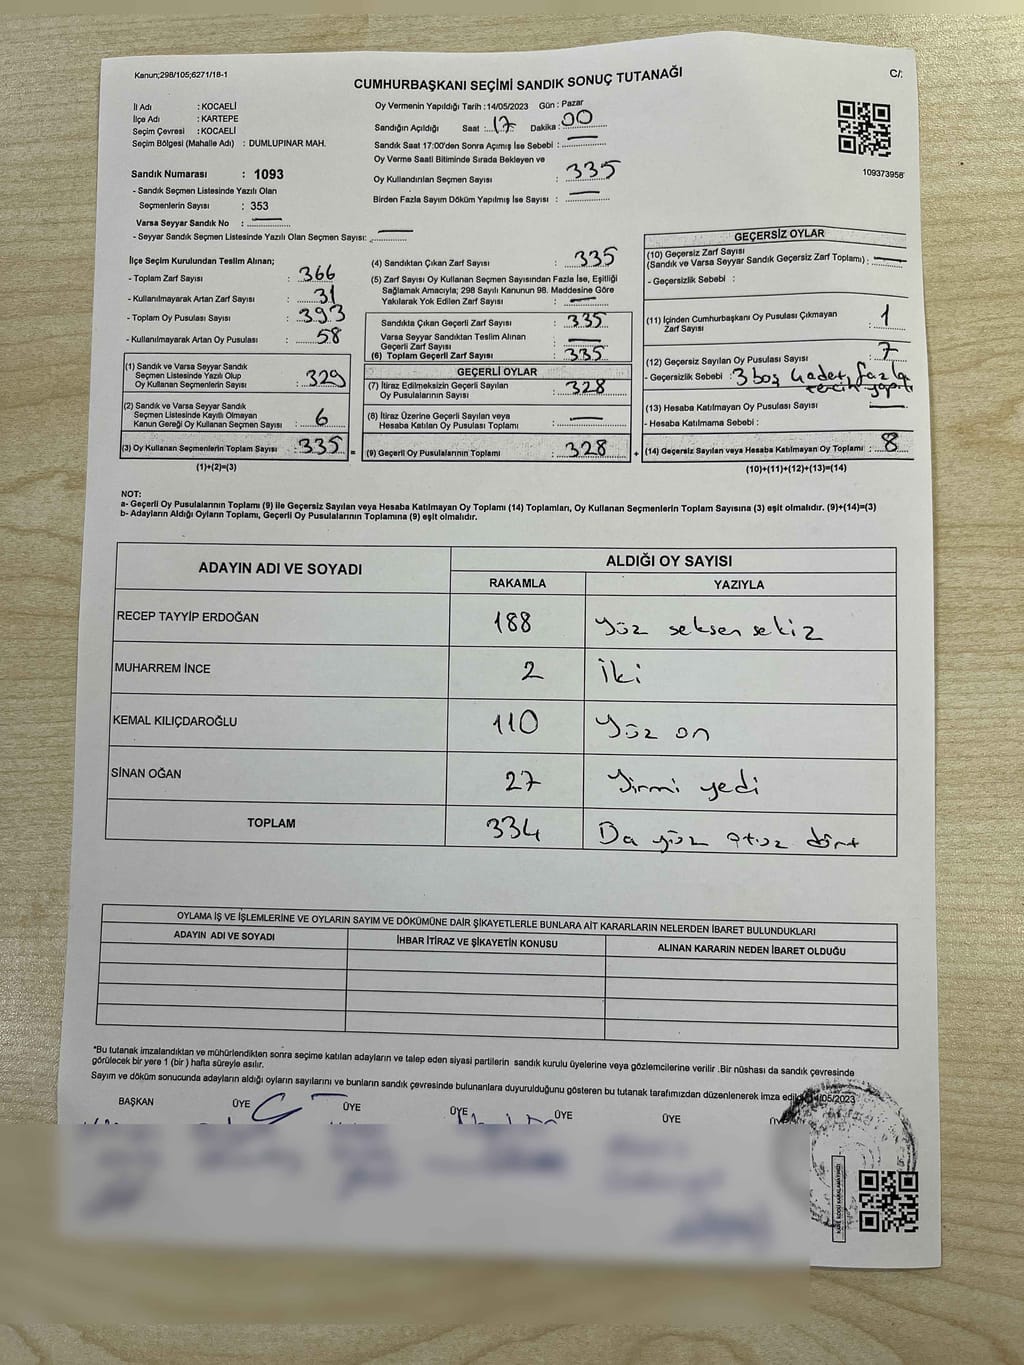 Kanun;298/105;6271/18-1
CUMHURBAŞKANI SEÇİMİ SANDIK SONUÇ TUTANAĞI
C/:
İl Adı : KOCAELİ
İlçe Adı : KARTEPE
Seçim Çevresi : KOCAELİ
Seçim Bölgesi (Mahalle Adı) : DUMLUPINAR MAH.
Sandık Numarası : 1093
- Sandık Seçmen Listesinde Yazılı Olan
Seçmenlerin Sayısı : 353
Varsa Seyyar Sandık No :
- Seyyar Sandık Seçmen Listesinde Yazılı Olan Seçmen Sayısı:
Oy Vermenin Yapıldığı Tarih :14/05/2023 Gün : Pazar
Sandığın Açıldığı Saat : 17 Dakika : 00
Sandık Saat 17:00'den Sonra Açımış İse Sebebi :
Oy Verme Saati Bitiminde Sırada Bekleyen ve
Oy Kullandırılan Seçmen Sayısı : 335
Birden Fazla Sayım Döküm Yapılmış İse Sayısı :
109373958
İlçe Seçim Kurulundan Teslim Alınan;
- Toplam Zarf Sayısı : 366
- Kullanılmayarak Artan Zarf Sayısı : 31
- Toplam Oy Pusulası Sayısı : 393
- Kullanılmayarak Artan Oy Pusulası : 58
(1) Sandık ve Varsa Seyyar Sandık
Seçmen Listesinde Yazılı Olup
Oy Kullanan Seçmenlerin Sayısı : 329
(2) Sandık ve Varsa Seyyar Sandık
Seçmen Listesinde Kayıtlı Olmayan
Kanun Gereği Oy Kullanan Seçmen Sayısı : 6
(3) Oy Kullanan Seçmenlerin Toplam Sayısı : 335 =
(1)+(2)=(3)
(4) Sandıktan Çıkan Zarf Sayısı : 335
(5) Zarf Sayısı Oy Kullanan Seçmen Sayısından Fazla İse, Eşitliği
Sağlamak Amacıyla; 298 Sayılı Kanunun 98. Maddesine Göre
Yakılarak Yok Edilen Zarf Sayısı :
Sandıkta Çıkan Geçerli Zarf Sayısı : 335
Varsa Seyyar Sandıktan Teslim Alınan
Geçerli Zarf Sayısı :
(6) Toplam Geçerli Zarf Sayısı : 335
GEÇERLİ OYLAR
(7) İtiraz Edilmeksizin Geçerli Sayılan
Oy Pusulalarının Sayısı : 328
(8) İtiraz Üzerine Geçerli Sayılan veya
Hesaba Katılan Oy Pusulası Toplamı :
(9) Geçerli Oy Pusulalarının Toplamı : 328 +
GEÇERSİZ OYLAR
(10) Geçersiz Zarf Sayısı
(Sandık ve Varsa Seyyar Sandık Geçersiz Zarf Toplamı) :
- Geçersizlik Sebebi :
(11) İçinden Cumhurbaşkanı Oy Pusulası Çıkmayan
Zarf Sayısı : 1
(12) Geçersiz Sayılan Oy Pusulası Sayısı : 7
- Geçersizlik Sebebi : 3 boş 4 adet fazla
tercih yapıldı
(13) Hesaba Katılmayan Oy Pusulası Sayısı :
- Hesaba Katılmama Sebebi :
(14) Geçersiz Sayılan veya Hesaba Katılmayan Oy Toplamı : 8
(10)+(11)+(12)+(13)=(14)
NOT:
a- Geçerli Oy Pusulalarının Toplamı (9) ile Geçersiz Sayılan veya Hesaba Katılmayan Oy Toplamı (14) Toplamları, Oy Kullanan Seçmenlerin Toplam Sayısına (3) eşit olmalıdır. (9)+(14)=(3)
b- Adayların Aldığı Oyların Toplamı, Geçerli Oy Pusulalarının Toplamına (9) eşit olmalıdır.
ADAYIN ADI VE SOYADI ALDIĞI OY SAYISI
RAKAMLA YAZIYLA
RECEP TAYYİP ERDOĞAN 188 Yüz seksen sekiz
MUHARREM İNCE 2 İki
KEMAL KILIÇDAROĞLU 110 Yüz on
SİNAN OĞAN 27 Yirmi yedi
TOPLAM 334 yüz otuz dört
OYLAMA İŞ VE İŞLEMLERİNE VE OYLARIN SAYIM VE DÖKÜMÜNE DAİR ŞİKAYETLERLE BUNLARA AİT KARARLARIN NELERDEN İBARET BULUNDUKLARI
ADAYIN ADI VE SOYADI İHBAR İTİRAZ VE ŞİKAYETİN KONUSU ALINAN KARARIN NEDEN İBARET OLDUĞU
*Bu tutanak imzalandıktan ve mühürlendikten sonra seçime katılan adayların ve talep eden siyasi partilerin sandık kurulu üyelerine veya gözlemcilerine verilir .Bir nüshası da sandık çevresinde
görülecek bir yere 1 (bir ) hafta süreyle asılır.
Sayım ve döküm sonucunda adayların aldığı oyların sayılarını ve bunların sandık çevresinde bulunanlara duyurulduğunu gösteren bu tutanak tarafımızdan düzenlenerek imza edildi. 14/05/2023
BAŞKAN ÜYE ÜYE ÜYE ÜYE ÜYE ÜYE